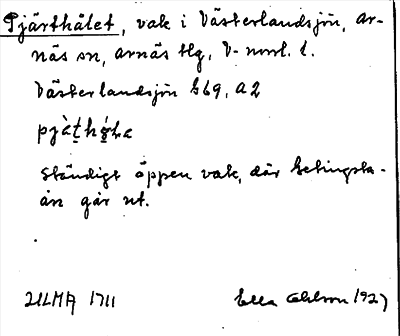 Pjärthålet, vak i Västerlandsjön, Ar-
näs sn, Arnäs tlg, V-norrl. l.
Västerlandsjön G69, A2
Ständigt öppen vak, där
ån går ut.
ULMA 1711 Ella Ohlson 1927